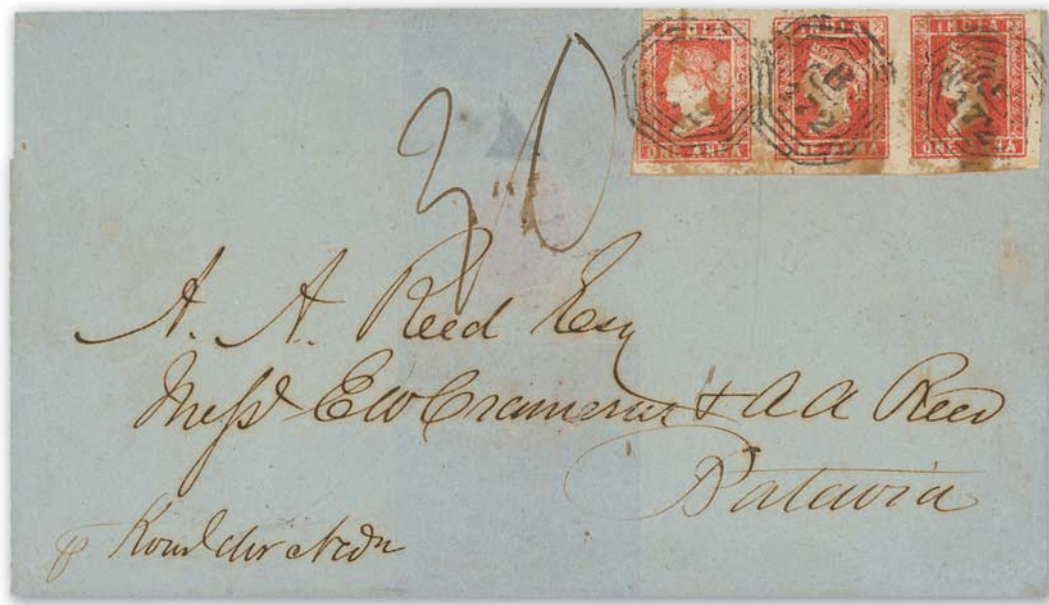 INDIA INDIA INDIA
ONE ANNA ONE ANNA ONE ANNA
B 172
30
A. A. Reed Esq
Messrs E W Cramerus & A A Reed
Batavia
p Kon der Nedn